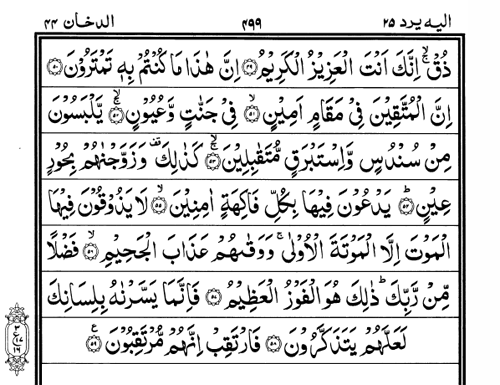 اليه يرد ٢٥ ٤٩٩ الدخان ٤٤
ذُقۡ ۙۚ اِنَّكَ اَنۡتَ الۡعَزِيۡزُ الۡكَرِيۡمُ ﴿۴۹﴾ اِنَّ هٰذَا مَا كُنۡتُمۡ بِهٖ تَمۡتَرُوۡنَ ﴿۵۰﴾
اِنَّ الۡمُتَّقِيۡنَ فِىۡ مَقَامٍ اَمِيۡنٍۙ ﴿۵۱﴾ فِىۡ جَنّٰتٍ وَّعُيُوۡنٍ ۙۚ ﴿۵۲﴾ يَّلۡبَسُوۡنَ
مِنۡ سُنۡدُسٍ وَّاِسۡتَبۡرَقٍ مُّتَقٰبِلِيۡنَ ۙۚ ﴿۵۳﴾ كَذٰلِكَ وَزَوَّجۡنٰهُمۡ بِحُوۡرٍ
عِيۡنٍؕ ﴿۵۴﴾ يَدۡعُوۡنَ فِيۡهَا بِكُلِّ فَاكِهَةٍ اٰمِنِيۡنَۙ ﴿۵۵﴾ لَا يَذُوۡقُوۡنَ فِيۡهَا
الۡمَوۡتَ اِلَّا الۡمَوۡتَةَ الۡاُوۡلٰى ۚ وَوَقٰٮهُمۡ عَذَابَ الۡجَحِيۡمِۙ ﴿۵۶﴾ فَضۡلًا
مِّنۡ رَّبِّكَ ؕ ذٰلِكَ هُوَ الۡفَوۡزُ الۡعَظِيۡمُ ﴿۵۷﴾ فَاِنَّمَا يَسَّرۡنٰهُ بِلِسَانِكَ
لَعَلَّهُمۡ يَتَذَكَّرُوۡنَ ﴿۵۸﴾ فَارۡتَقِبۡ اِنَّهُمۡ مُّرۡتَقِبُوۡنَ ﴿۵۹﴾